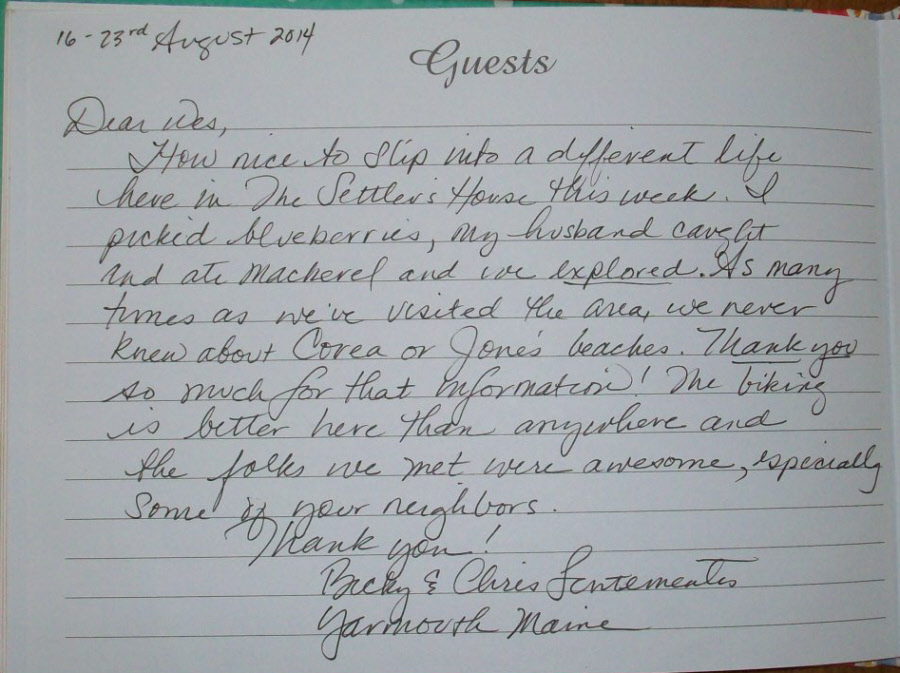 16-23rd August 2014
Guests
Dear Wes,
How nice to slip into a different life
here in The Settler's House this week. I
picked blueberries, my husband caught
and ate mackerel and we explored. As many
times as we've visited the area, we never
knew about Corea or Jone's beaches. Thank you
so much for that information! The biking
is better here than anywhere and
the folks we met were awesome, especially
some of your neighbors.
Thank you!
Becky & Chris
Yarmouth Maine